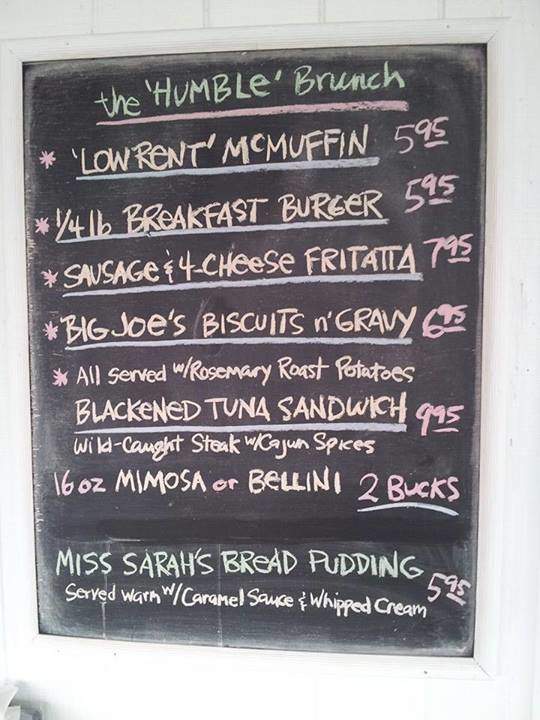 the 'HUMBLe' Brunch
* 'LOW RENT' MCMUFFIN 5 95
* 1/4 lb BREAKFAST BURGER 5 95
* SAUSAGE & 4-CHeeSe FRITATTA 7 95
* BIG JOe'S BISCUITS n' GRAVY 6 95
* All Served w/Rosemary Roast Potatoes
BLACKENED TUNA SANDWICH 9 95
Wild-Caught Steak w/Cajun Spices
16 oz MIMOSA or BeLLINI 2 BUCKS
MISS SARAH'S BReAD PUDDING 5 95
Served Warm w/Caramel Sauce & Whipped Cream